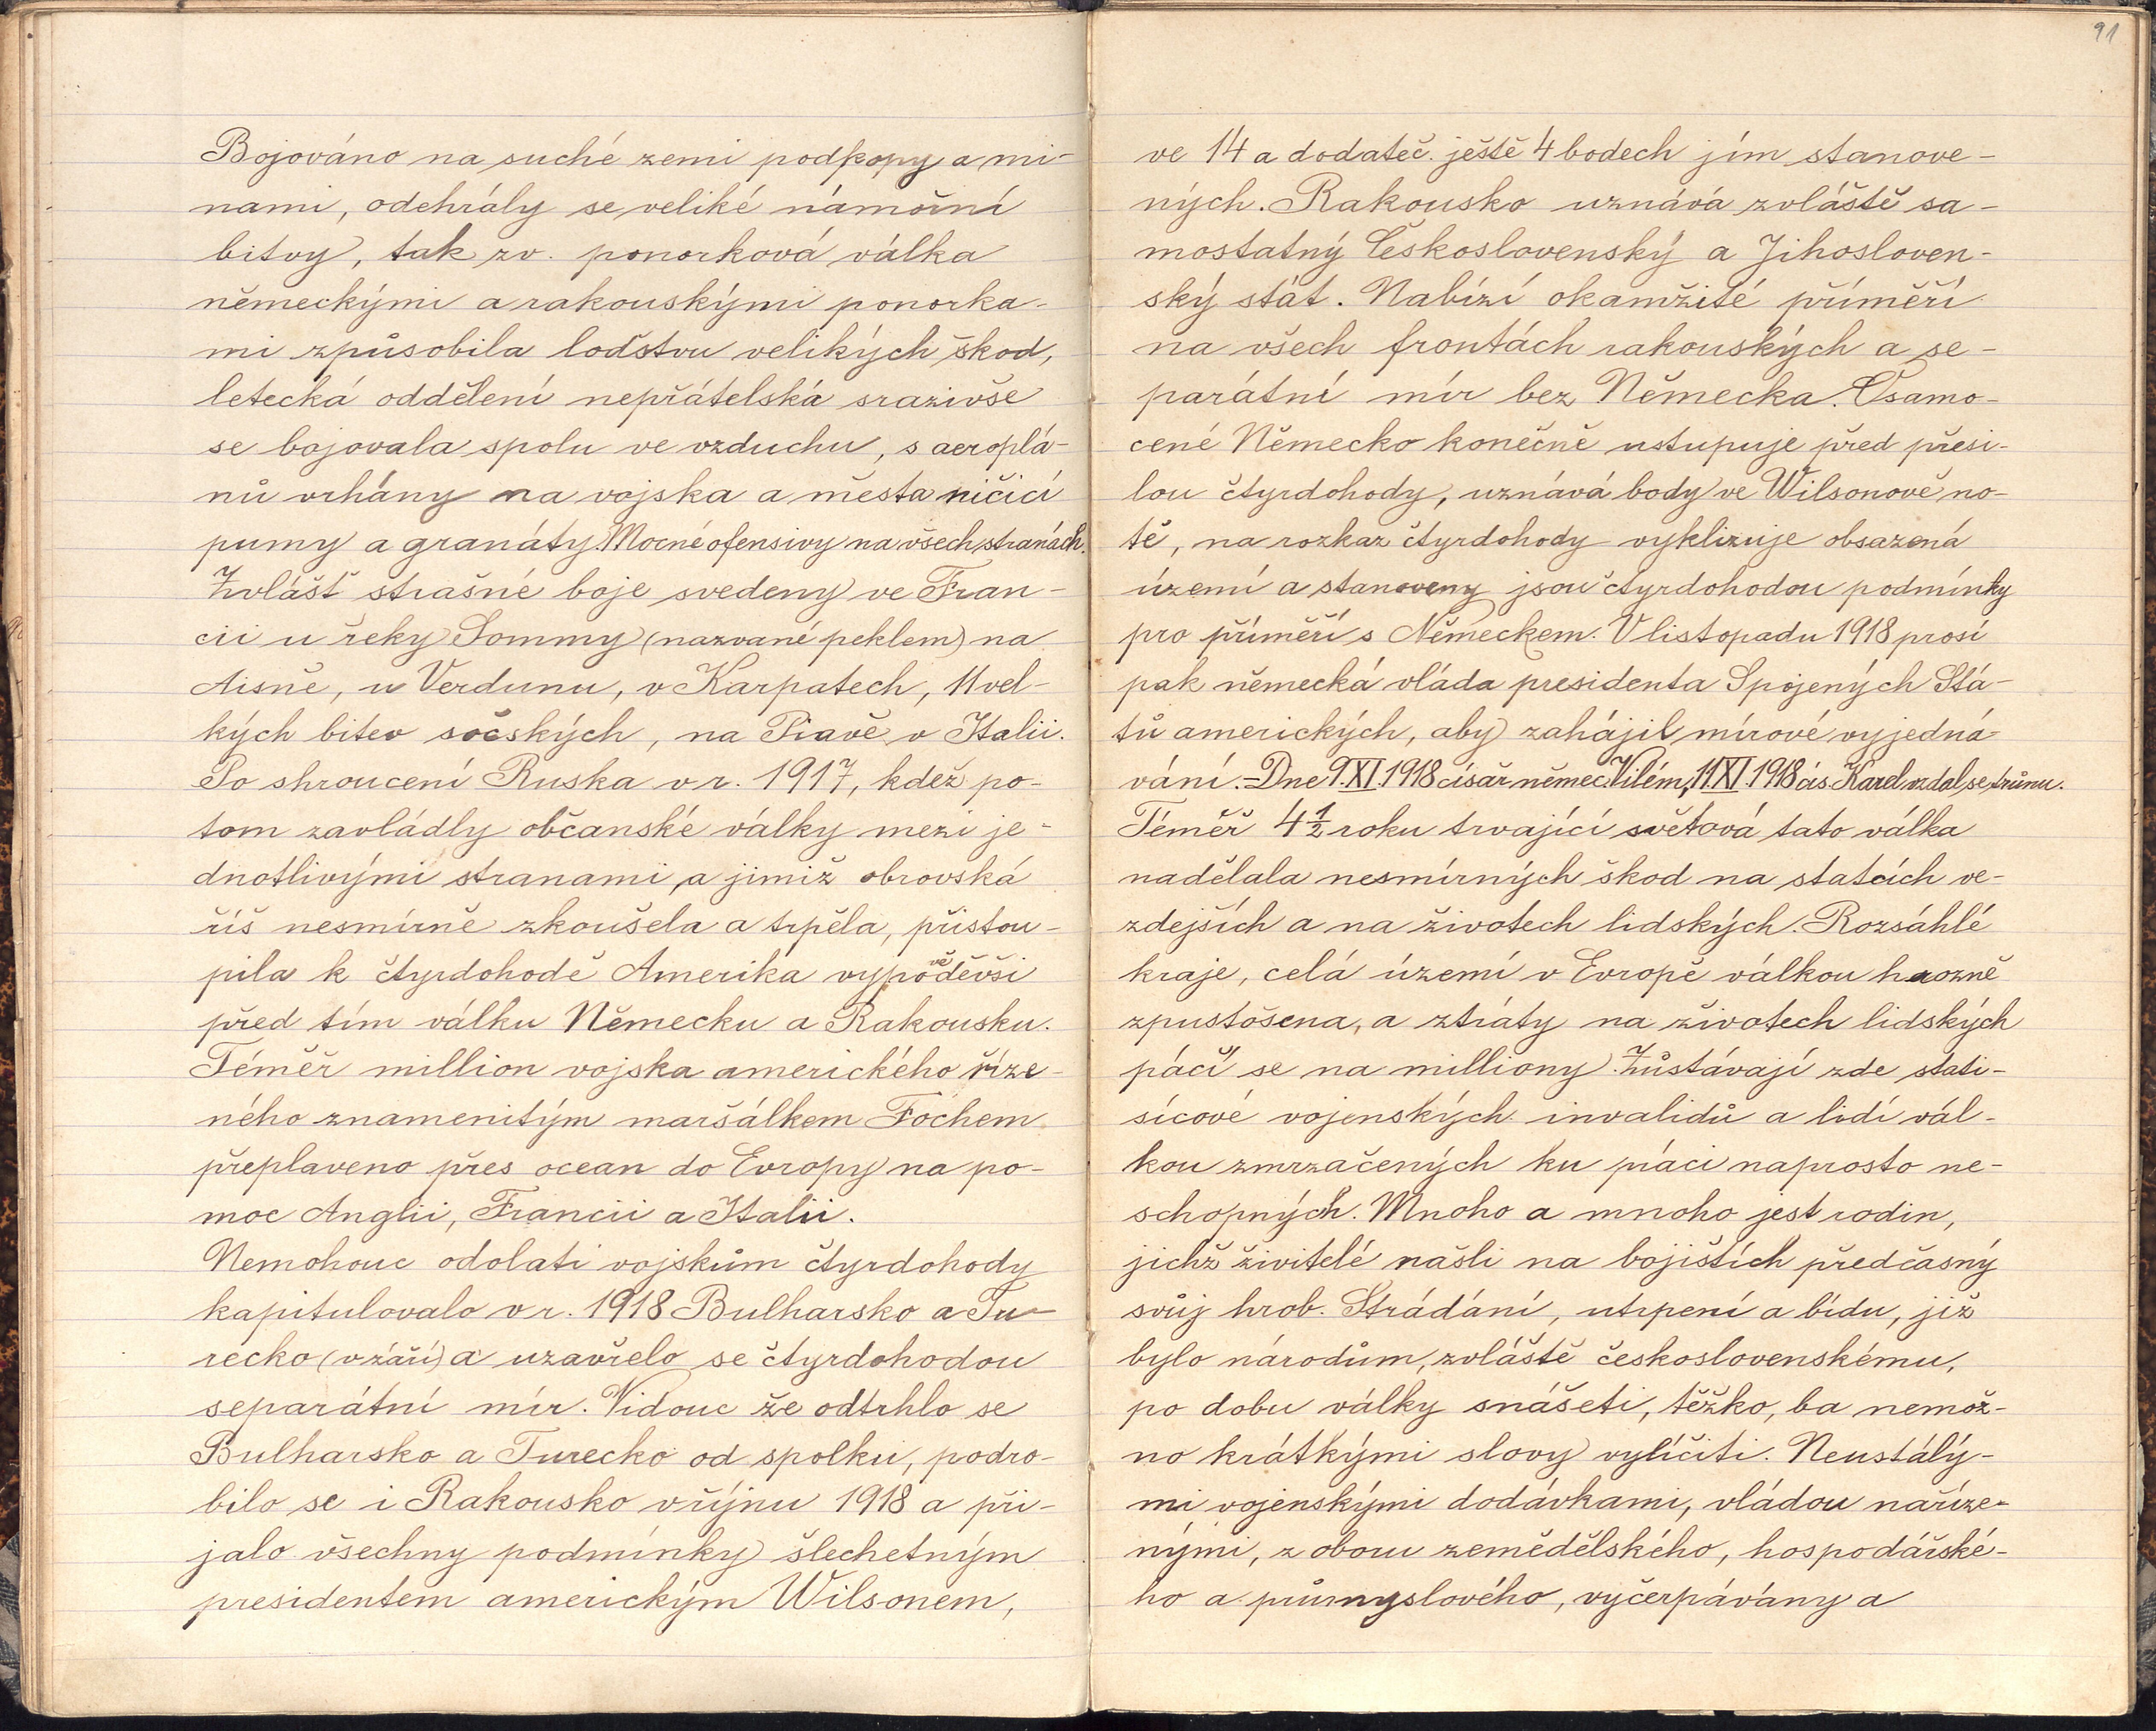 Bojováno na suché zemi podkopy a mi-
nami, odehrály se veliké námořní
bitvy, tak zv. ponorková válka
německými a rakouskými ponorka-
mi způsobila loďstvu velikých škod,
letecká oddělení nepřátelská srazivše
se bojovala spolu ve vzduchu, s aeroplá-
nů vrhány na vojska a města ničicí
pumy a granáty. Mocné ofensivy na všech stranách.
Zvlášť strašné boje svedeny ve Fran-
cii u řeky Sommy (nazvané peklem) na
Aisně, u Verdunu, v Karpatech, 11 vel-
kých bitev sočských, na Piavě v Italii.
Po shroucení Ruska v r. 1917, kdež po-
tom zavládly občanské války mezi je-
dnotlivými stranami, a jimiž obrovská
říš nesmírně zkoušela a trpěla, přistou-
pila k čtyrdohodě Amerika vypověděvši
před tím válku Německu a Rakousku.
Téměř million vojska amerického říze-
ného znamenitým maršálkem Fochem
přeplaveno přes ocean do Evropy na po-
moc Anglii, Francii a Italii.
Nemohouc odolati vojskům čtyrdohody
kapitulovalo v r. 1918 Bulharsko a Tu-
recko (v září) a uzavřelo se čtyrdohodou
separátní mír. Vidouc že odtrhlo se
Bulharsko a Turecko od spolku, podro-
bilo se i Rakousko v říjnu 1918 a při-
jalo všechny podmínky šlechetným
presidentem americkým Wilsonem,
91
ve 14 a dodateč. ještě 4 bodech jím stanove-
ných. Rakousko uznává zvláště sa-
mostatný Československý a Jihosloven-
ský stát. Nabízí okamžité příměří
na všech frontách rakouských a se-
parátní mír bez Německa. Osamo-
cené Německo konečně ustupuje před přesi-
lou čtyrdohody, uznává body ve Wilsonově no-
tě, na rozkaz čtyrdohody vyklizuje obsazená
území a stanoveny jsou čtyrdohodou podmínky
pro příměří s Německem. V listopadu 1918 prosí
pak německá vláda presidenta Spojených Stá-
tů amerických, aby zahájil mírové vyjedná-
vání. - Dne 9. XI. 1918 císař němec. Vilém, 11. XI. 1918 cís. Karel vzdal se trůnu.
Téměř 4 1/2 roku trvající světová tato válka
nadělala nesmírných škod na statcích ve-
zdejších a na životech lidských. Rozsáhlé
kraje, celá území v Evropě válkou hrozně
zpustošena, a ztráty na životech lidských
páčí se na milliony. Zůstávají zde stati-
sícové vojenských invalidů a lidí vál-
kou zmrzačených ku práci naprosto ne-
schopných. Mnoho a mnoho jest rodin,
jichž živitelé našli na bojištích předčasný
svůj hrob. Strádání, utrpení a bídu, již
bylo národům, zvláště československému,
po dobu války snášeti, těžko, ba nemož-
no krátkými slovy vylíčiti. Neustálý-
mi vojenskými dodávkami, vládou naříze-
nými, z oboru zemědělského, hospodářské-
ho a průmyslového, vyčerpávány a